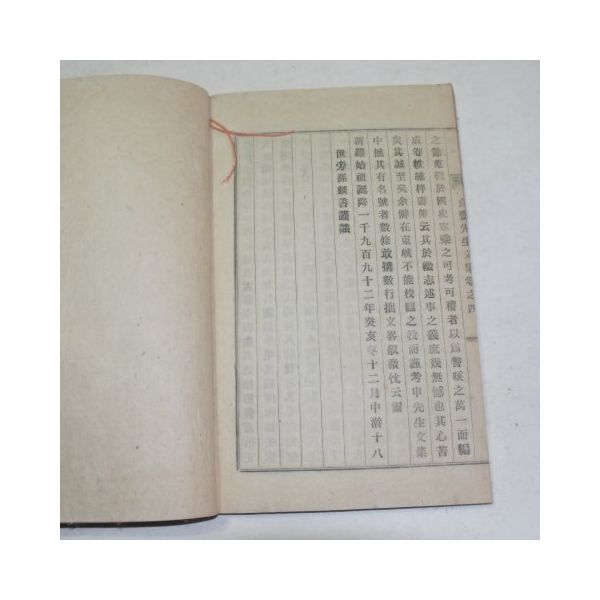 先生文集卷之四
之節蹇於國史家乘之可考可稽者以爲警咳之萬一而編
成卷帙繡梓壽傳云其於繼志述事之義庶幾無憾也其心苦
矣其誠至矣余僻在東峽不能校讎之役而謹考申先生文集
中摭其有名號者數條敢搆數行拙文畧叙微忱云爾
新羅始祖誕降一千九百九十二年癸亥冬十二月中澣十八
世旁孫麟善謹識